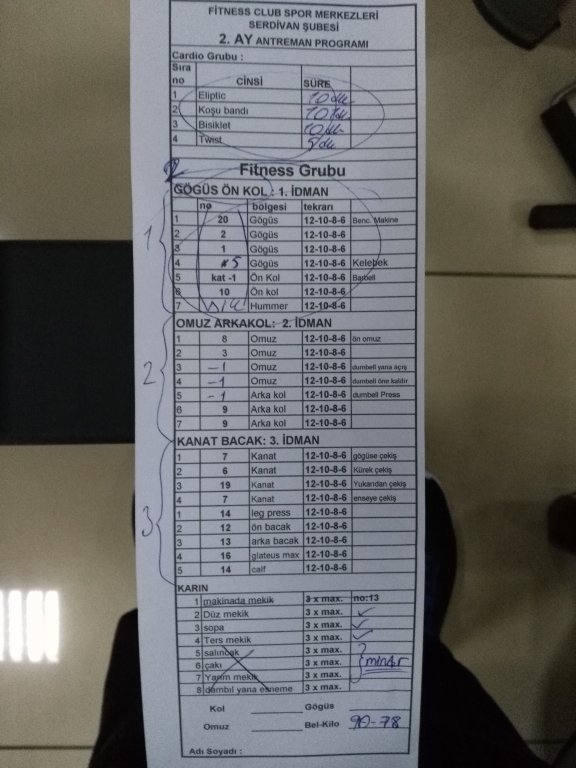 FİTNESS CLUB SPOR MERKEZLERİ
SERDİVAN ŞUBESİ
2. AY ANTREMAN PROGRAMI
Cardio Grubu :
Sıra no CİNSİ SÜRE
1 Eliptic 10 dk
2 Koşu bandı 10 dk
3 Bisiklet 10 dk
4 Twist 5 dk
Fitness Grubu
GÖGÜS ÖN KOL : 1. İDMAN
no bölgesi tekrarı
1 20 Gögüs 12-10-8-6 Benc. Makine
2 2 Gögüs 12-10-8-6
3 1 Gögüs 12-10-8-6
4 5 Gögüs 12-10-8-6 Kelebek
5 kat -1 Ön Kol 12-10-8-6 Barbell
6 10 Ön kol 12-10-8-6
7 Hummer 12-10-8-6
1
OMUZ ARKAKOL: 2. İDMAN
1 8 Omuz 12-10-8-6 ön omuz
2 3 Omuz 12-10-8-6
3 -1 Omuz 12-10-8-6 dumbell yana açış
4 -1 Omuz 12-10-8-6 dumbell öne kaldır
5 -1 Arka kol 12-10-8-6 dumbell Press
6 9 Arka kol 12-10-8-6
7 9 Arka kol 12-10-8-6
2
KANAT BACAK: 3. İDMAN
1 7 Kanat 12-10-8-6 gögüse çekiş
2 6 Kanat 12-10-8-6 Kürek çekiş
3 19 Kanat 12-10-8-6 Yukarıdan çekiş
4 7 Kanat 12-10-8-6 enseye çekiş
1 14 leg press 12-10-8-6
2 12 ön bacak 12-10-8-6
3 13 arka bacak 12-10-8-6
4 16 glateus max 12-10-8-6
5 14 calf 12-10-8-6
3
KARIN
1 makinada mekik 3 x max. no:13
2 Düz mekik 3 x max.
3 sopa 3 x max.
4 Ters mekik 3 x max.
5 salıncak 3 x max.
6 çakı 3 x max. minder
7 Yarım mekik 3 x max.
8 dambıl yana esneme 3 x max.
Kol Gögüs
Omuz Bel-Kilo 90-78
Adı Soyadı :